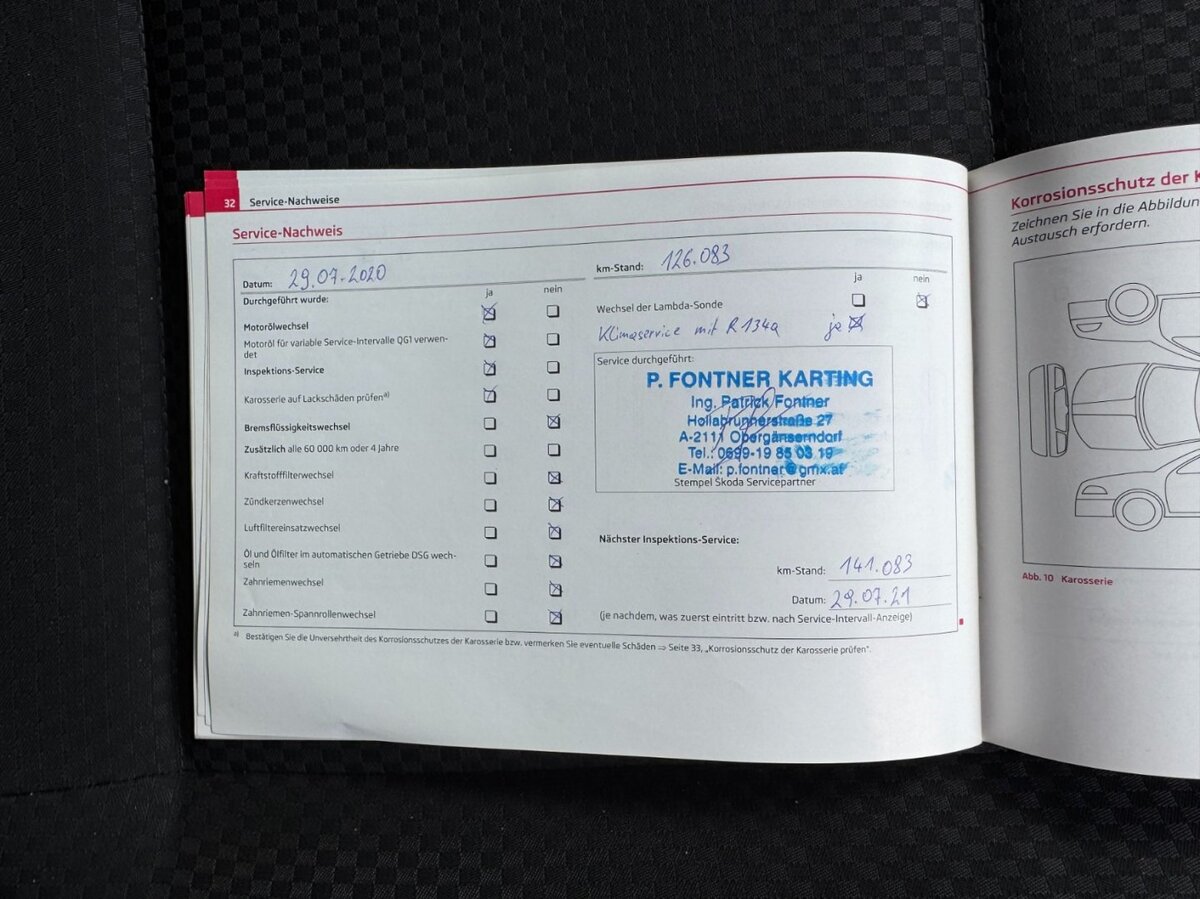 32 Service-Nachweise
Service-Nachweis
Datum: 29.07.2020
Durchgeführt wurde: ja nein
Motorölwechsel
Motoröl für variable Service-Intervalle QG1 verwen-
det
Inspektions-Service
Karosserie auf Lackschäden prüfen a)
Bremsflüssigkeitswechsel
Zusätzlich alle 60 000 km oder 4 Jahre
Kraftstofffilterwechsel
Zündkerzenwechsel
Luftfiltereinsatzwechsel
Öl und Ölfilter im automatischen Getriebe DSG wech-
seln
Zahnriemenwechsel
Zahnriemen-Spannrollenwechsel
km-Stand: 126.083
ja nein
Wechsel der Lambda-Sonde
Klimaservice mit R134a ja
Service durchgeführt:
P. FONTNER KARTING
Ing. Patrick Fontner
Hollabrunnerstraße 27
A-2111 Obergänserndorf
Tel.: 0699-19 85 03 19
E-Mail: p.fontner@gmx.at
Stempel Škoda Servicepartner
Nächster Inspektions-Service:
km-Stand: 141.083
Datum: 29.07.21
(je nachdem, was zuerst eintritt bzw. nach Service-Intervall-Anzeige)
a) Bestätigen Sie die Unversehrtheit des Korrosionsschutzes der Karosserie bzw. vermerken Sie eventuelle Schäden ⇒ Seite 33, „Korrosionsschutz der Karosserie prüfen“.
Korrosionsschutz der K
Zeichnen Sie in die Abbildun
Austausch erfordern.
Abb. 10 Karosserie